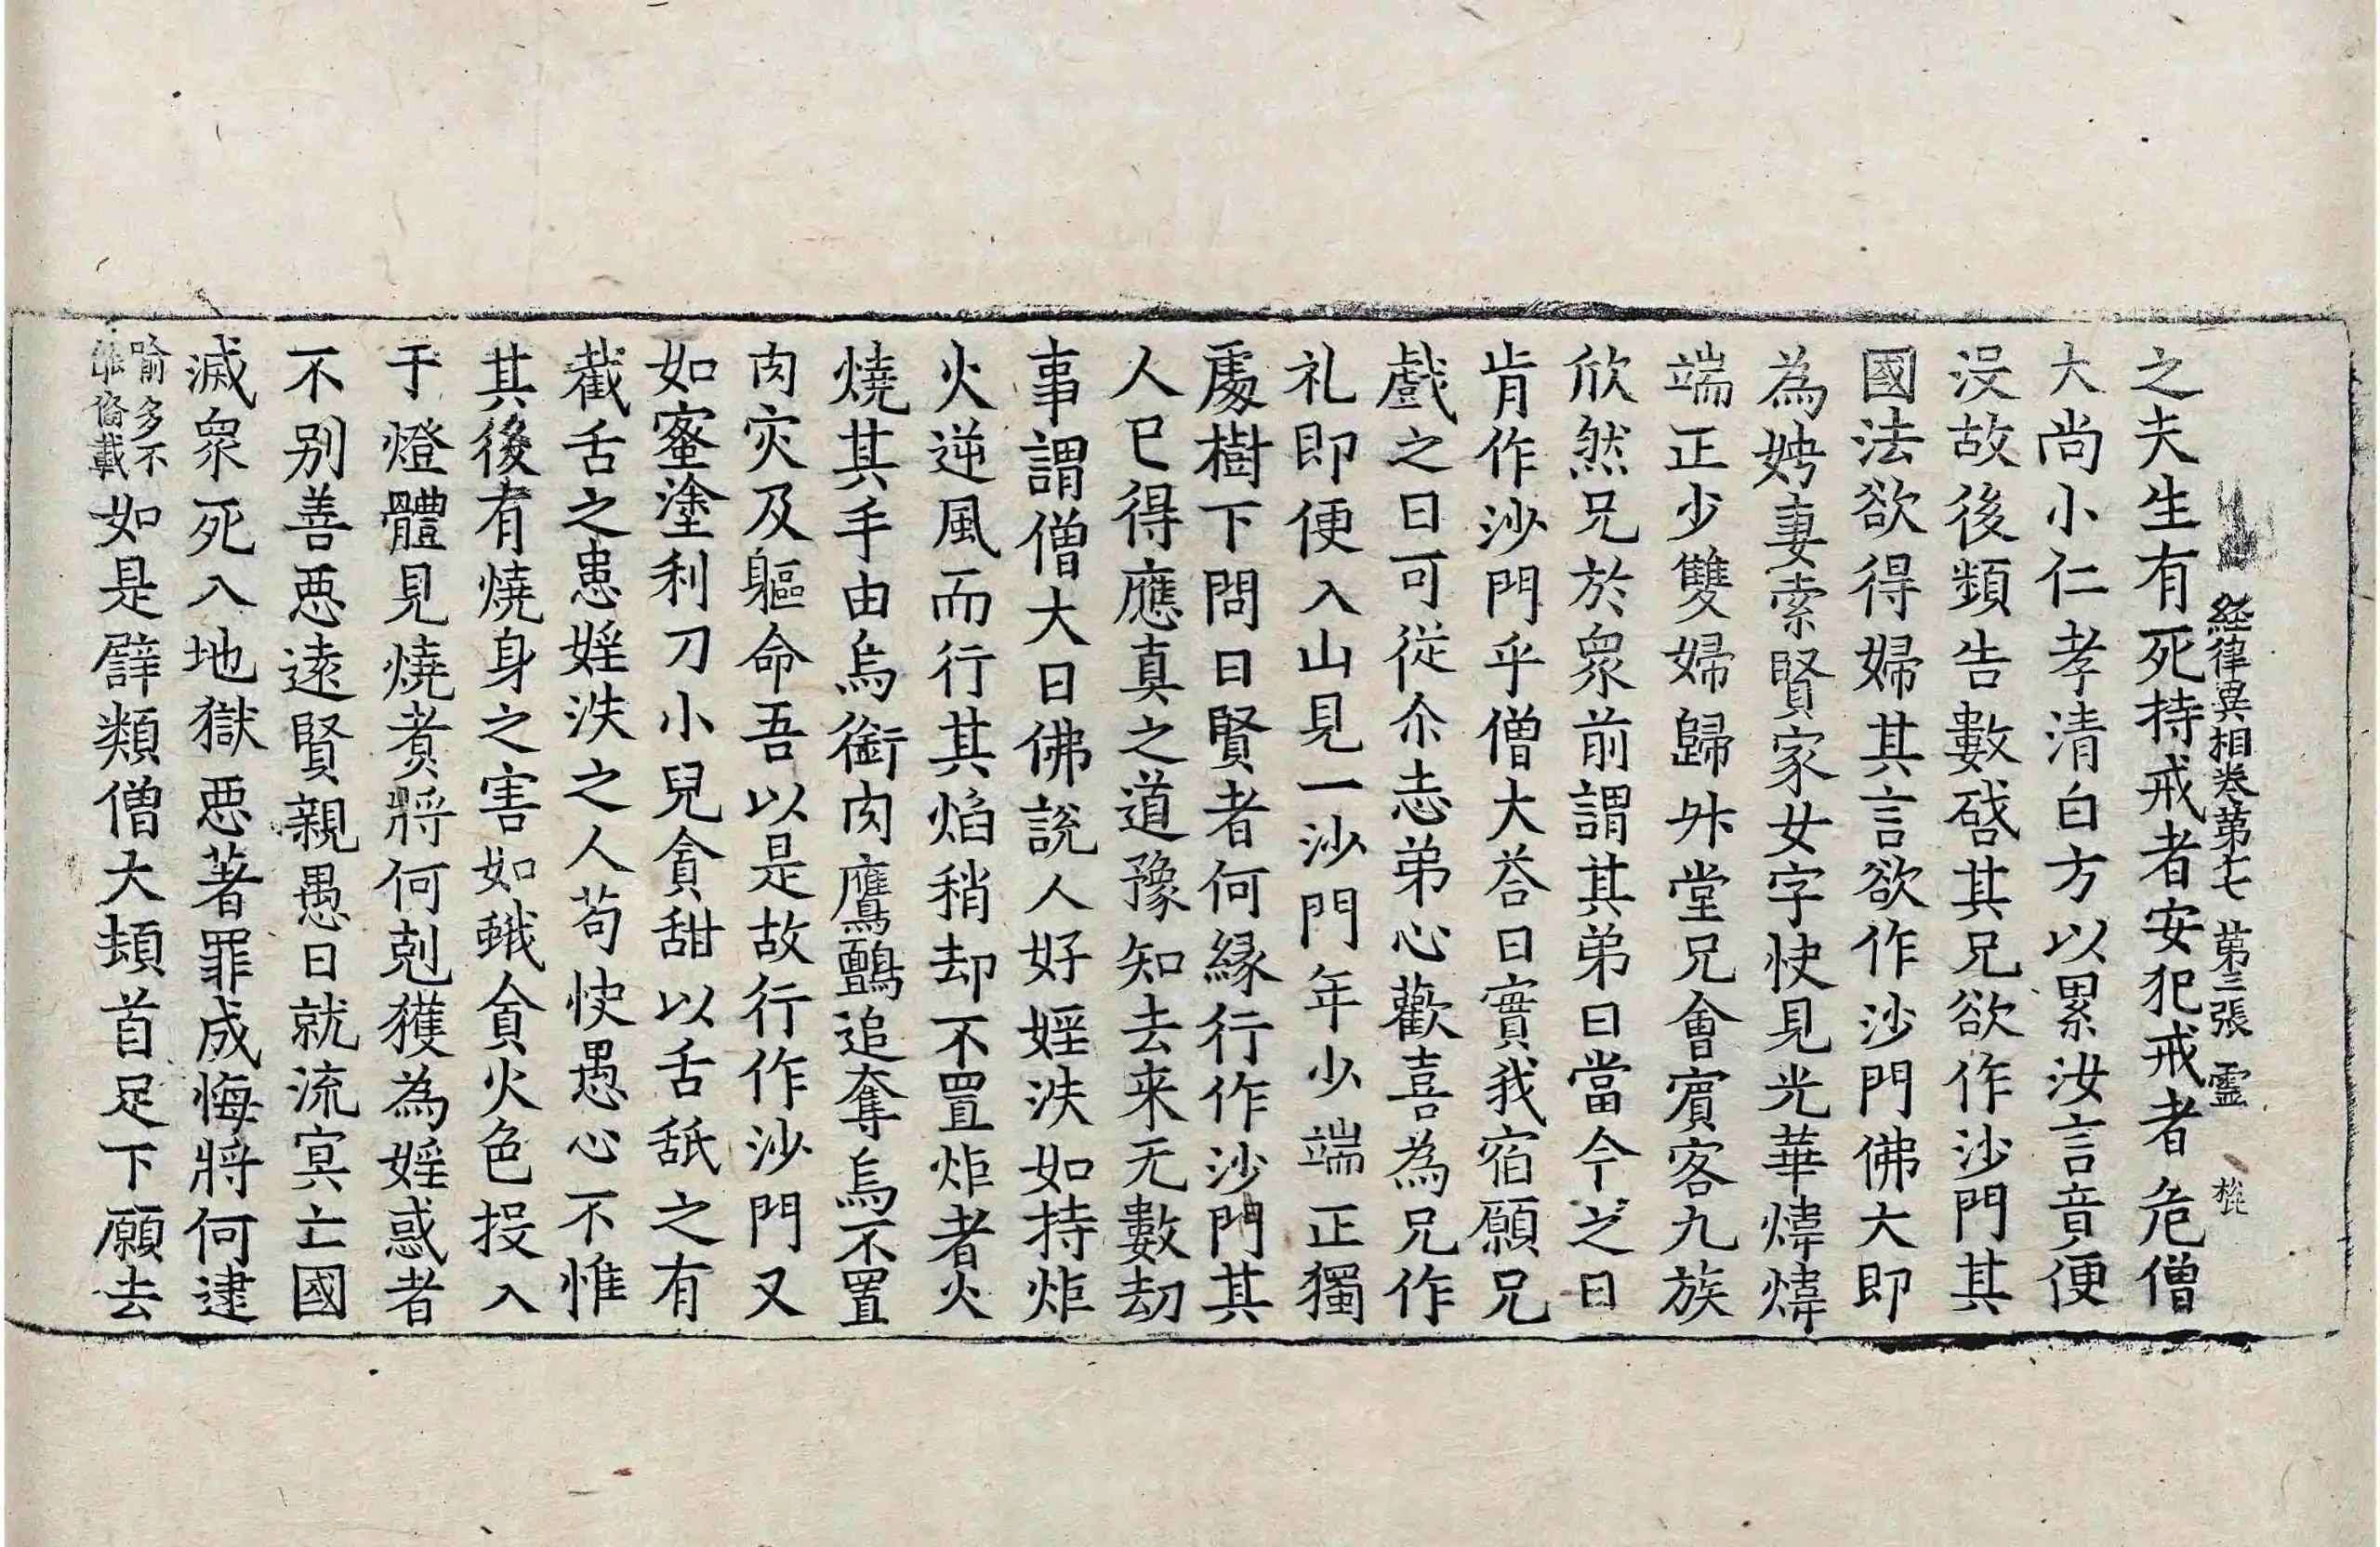 經律異相卷第七 第三張 靈
之夫生有死持戒者安犯戒者危僧
大尚小仁孝清白方以累汝言音便
沒故後頻告數啓其兄欲作沙門其
國法欲得婦其言欲作沙門佛大即
為娉妻索賢家女字快見光華煒煒
端正少雙婦歸外堂兄會賓客九族
欣然兄於衆前謂其弟曰當今之日
肯作沙門乎僧大荅曰實我宿願兄
戲之曰可從尒志弟心歡喜為兄作
礼即便入山見一沙門年少端正獨
處樹下問曰賢者何緣行作沙門其
人已得應真之道豫知去来无數劫
事謂僧大曰佛說人好婬泆如持炬
火逆風而行其焰稍却不置炬者火
燒其手由烏銜肉鷹鸇追奪烏不置
肉灾及軀命吾以是故行作沙門又
如蜜塗利刀小兒貪甜以舌舐之有
截舌之患婬泆之人苟快愚心不惟
其後有燒身之害如蛾貪火色投入
于燈體見燒煑將何剋獲為婬惑者
不別善惡遠賢親愚日就流冥亡國
滅衆死入地獄惡著罪成悔將何逮
喻多不
備載如是譬類僧大頭首足下願去